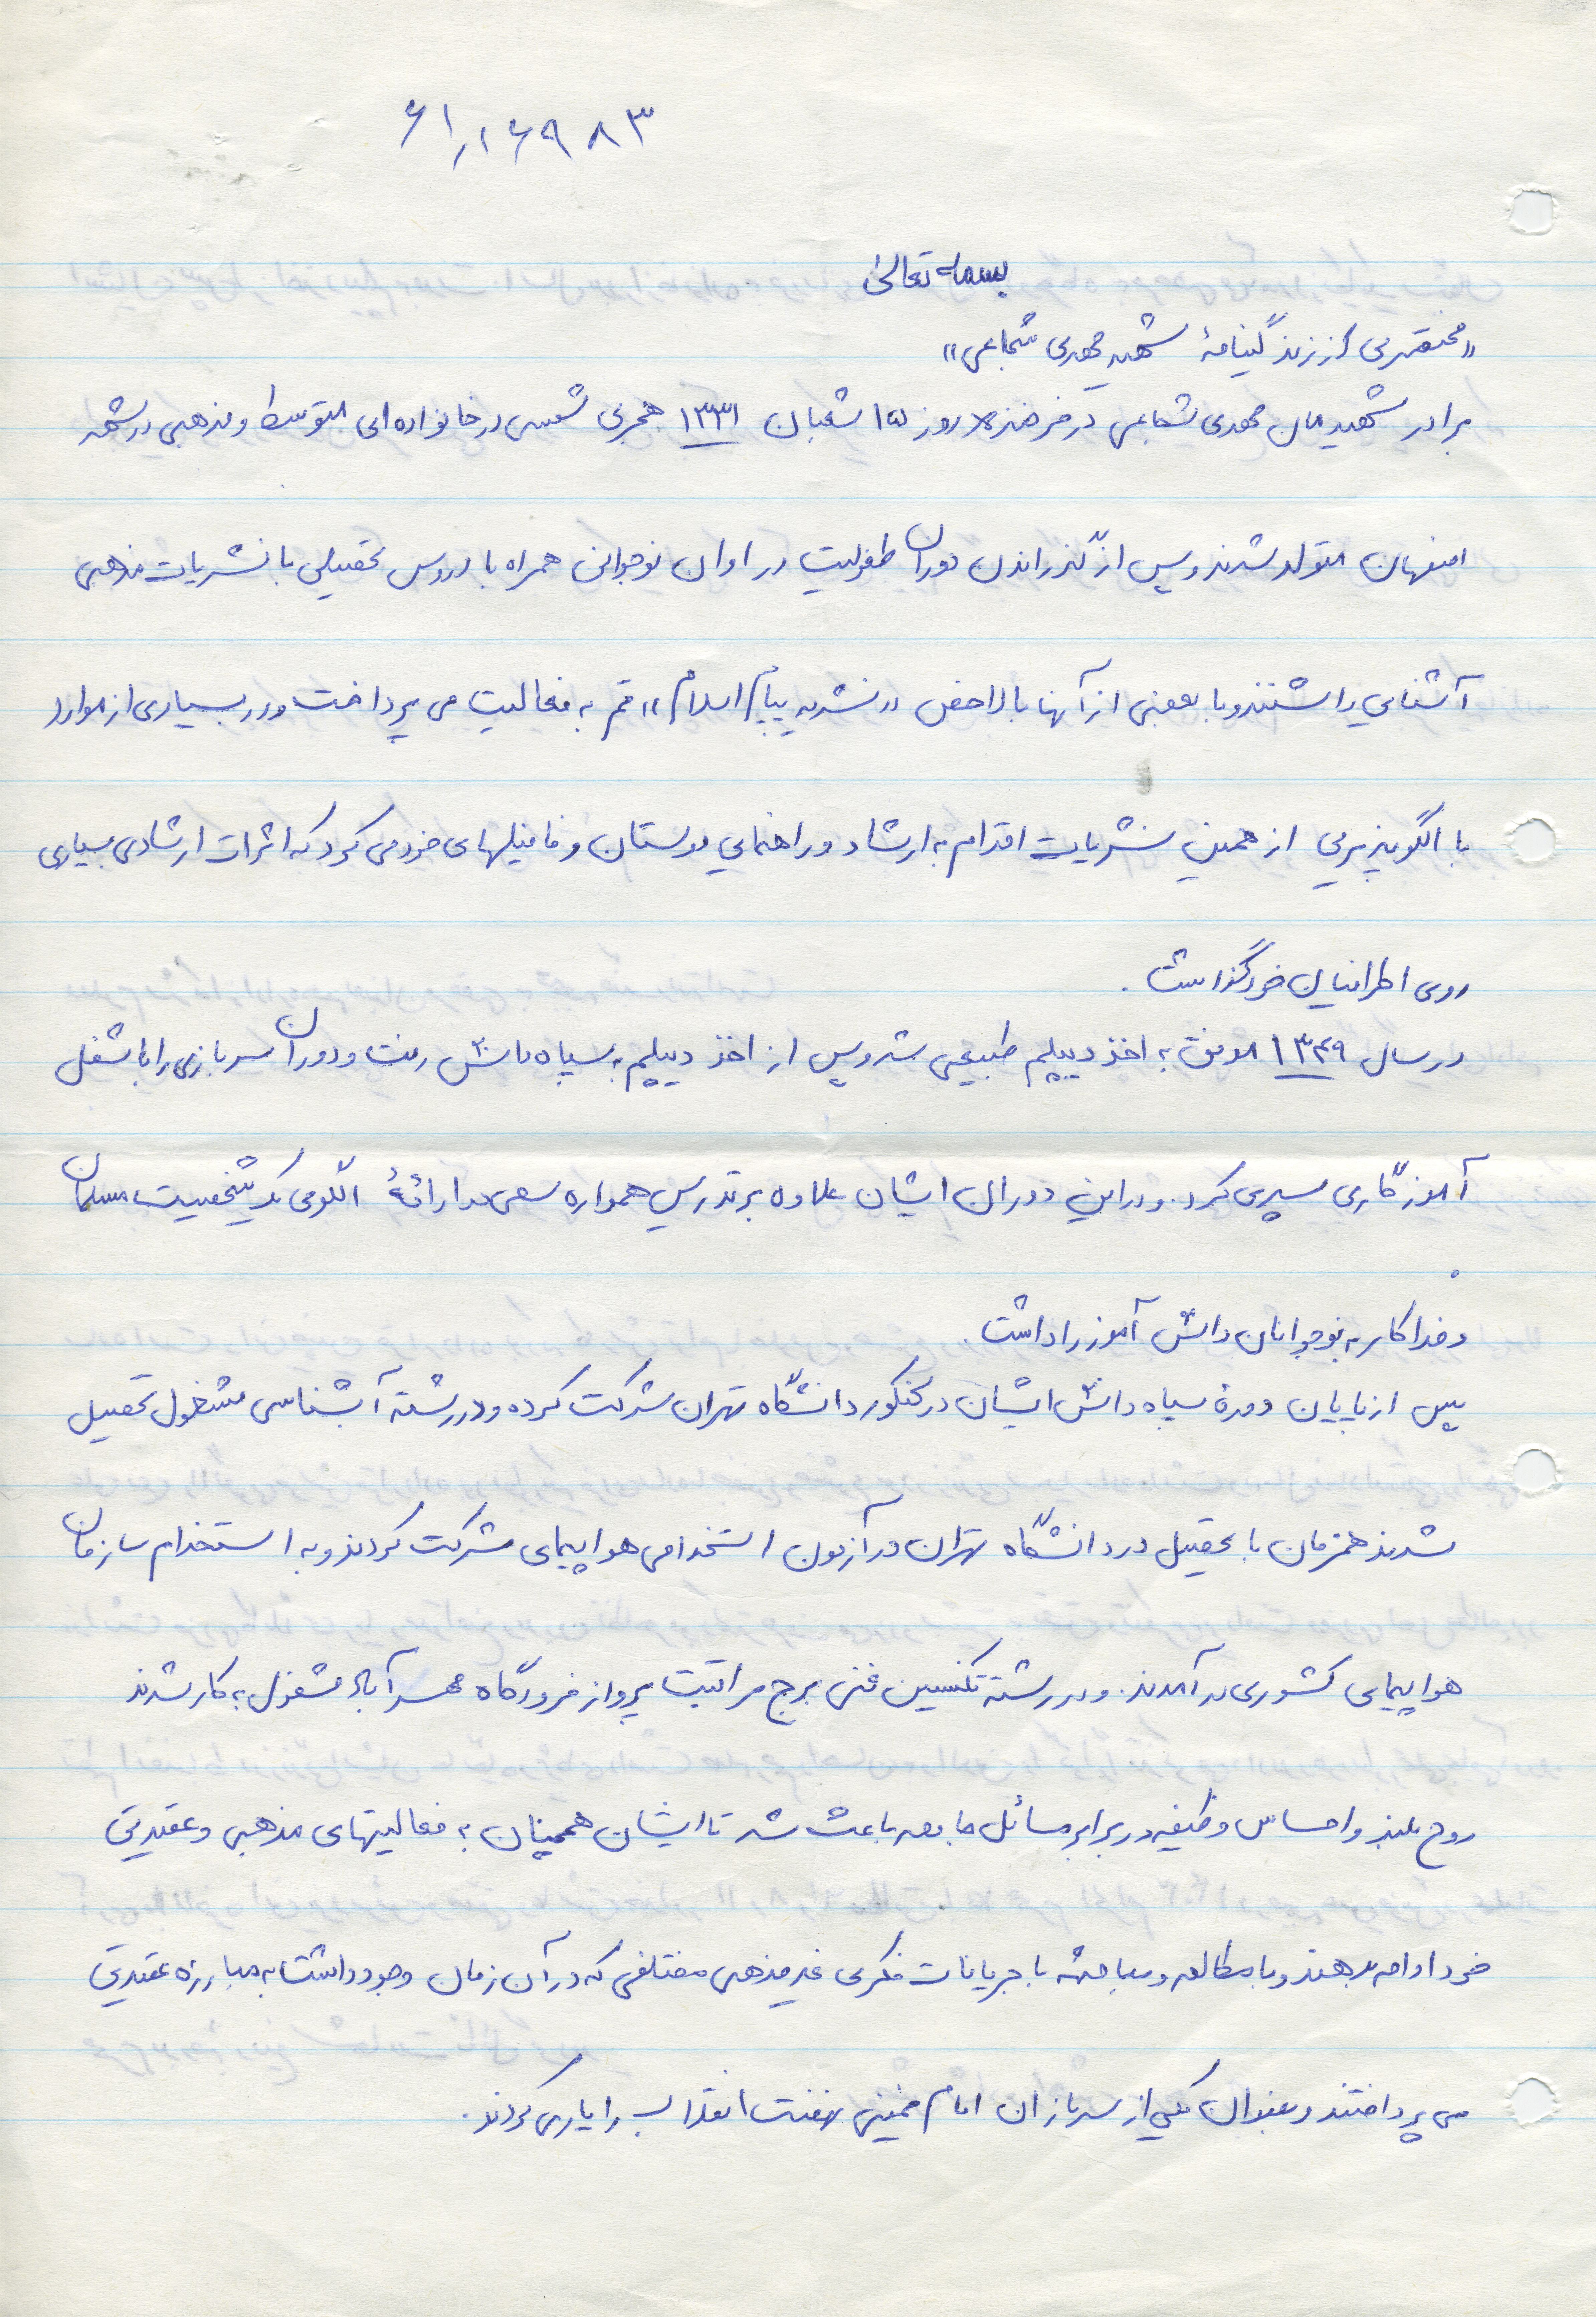 ۶۱٫۱۶۹۸۳
بسمه تعالی
«مختصری از زندگینامهٔ شهید مهدی شجاعی»
برادر شهیدمان مهدی شجاعی در فرخنده روز ۱۵ شعبان ۱۳۳۱ هجری شمسی در خانواده‌ای متوسط و مذهبی در
اصفهان متولد شدند و پس از گذراندن دوران طفولیت در اوان نوجوانی همراه با دروس تحصیلی با نشریات مذهبی
آشنایی داشتند و با بعضی از آنها بالاخص «نشریه پیام اسلام» قم به فعالیت می پرداخت و در بسیاری از موارد
با الگوپذیری از همین نشریات اقدام به ارشاد و راهنمایی دوستان و فامیلهای خود می کرد که اثرات ارشادی بسیاری
روی اطرافیان خود گذاشت.
در سال ۱۳۴۹ موفق به اخذ دیپلم طبیعی شد و پس از اخذ دیپلم به سپاه دانش رفت و دوران سربازی را با شغل
آموزگاری سپری کرد. و در این دوران ایشان علاوه بر تدریس همواره سعی در ارائهٔ الگوی یک شخصیت مسلمان
و فداکار به نوجوانان دانش آموز را داشت.
پس از پایان دورهٔ سپاه دانش ایشان در کنکور دانشگاه تهران شرکت کرده و در رشته آبشناسی مشغول تحصیل
شدند همزمان با تحصیل در دانشگاه تهران در آزمون استخدامی هواپیمای شرکت کردند و به استخدام سازمان
هواپیمای کشوری در آمدند. و در رشته تکنسین فنی برج مراقبت پرواز فرودگاه مهرآباد مشغول به کار شدند
روح بلند و احساس وظیفه در برابر مسائل جامعه باعث شد تا ایشان همچنان به فعالیتهای مذهبی و عقیدتی
خود ادامه بدهند و با مطالعه و مباحثه با جریانات فکری غیر مذهبی مختلفی که در آن زمان وجود داشت به مبارزه عقیدتی
می پرداختند و بعنوان یکی از سربازان امام خمینی نهضت انقلاب را یاری کردند.